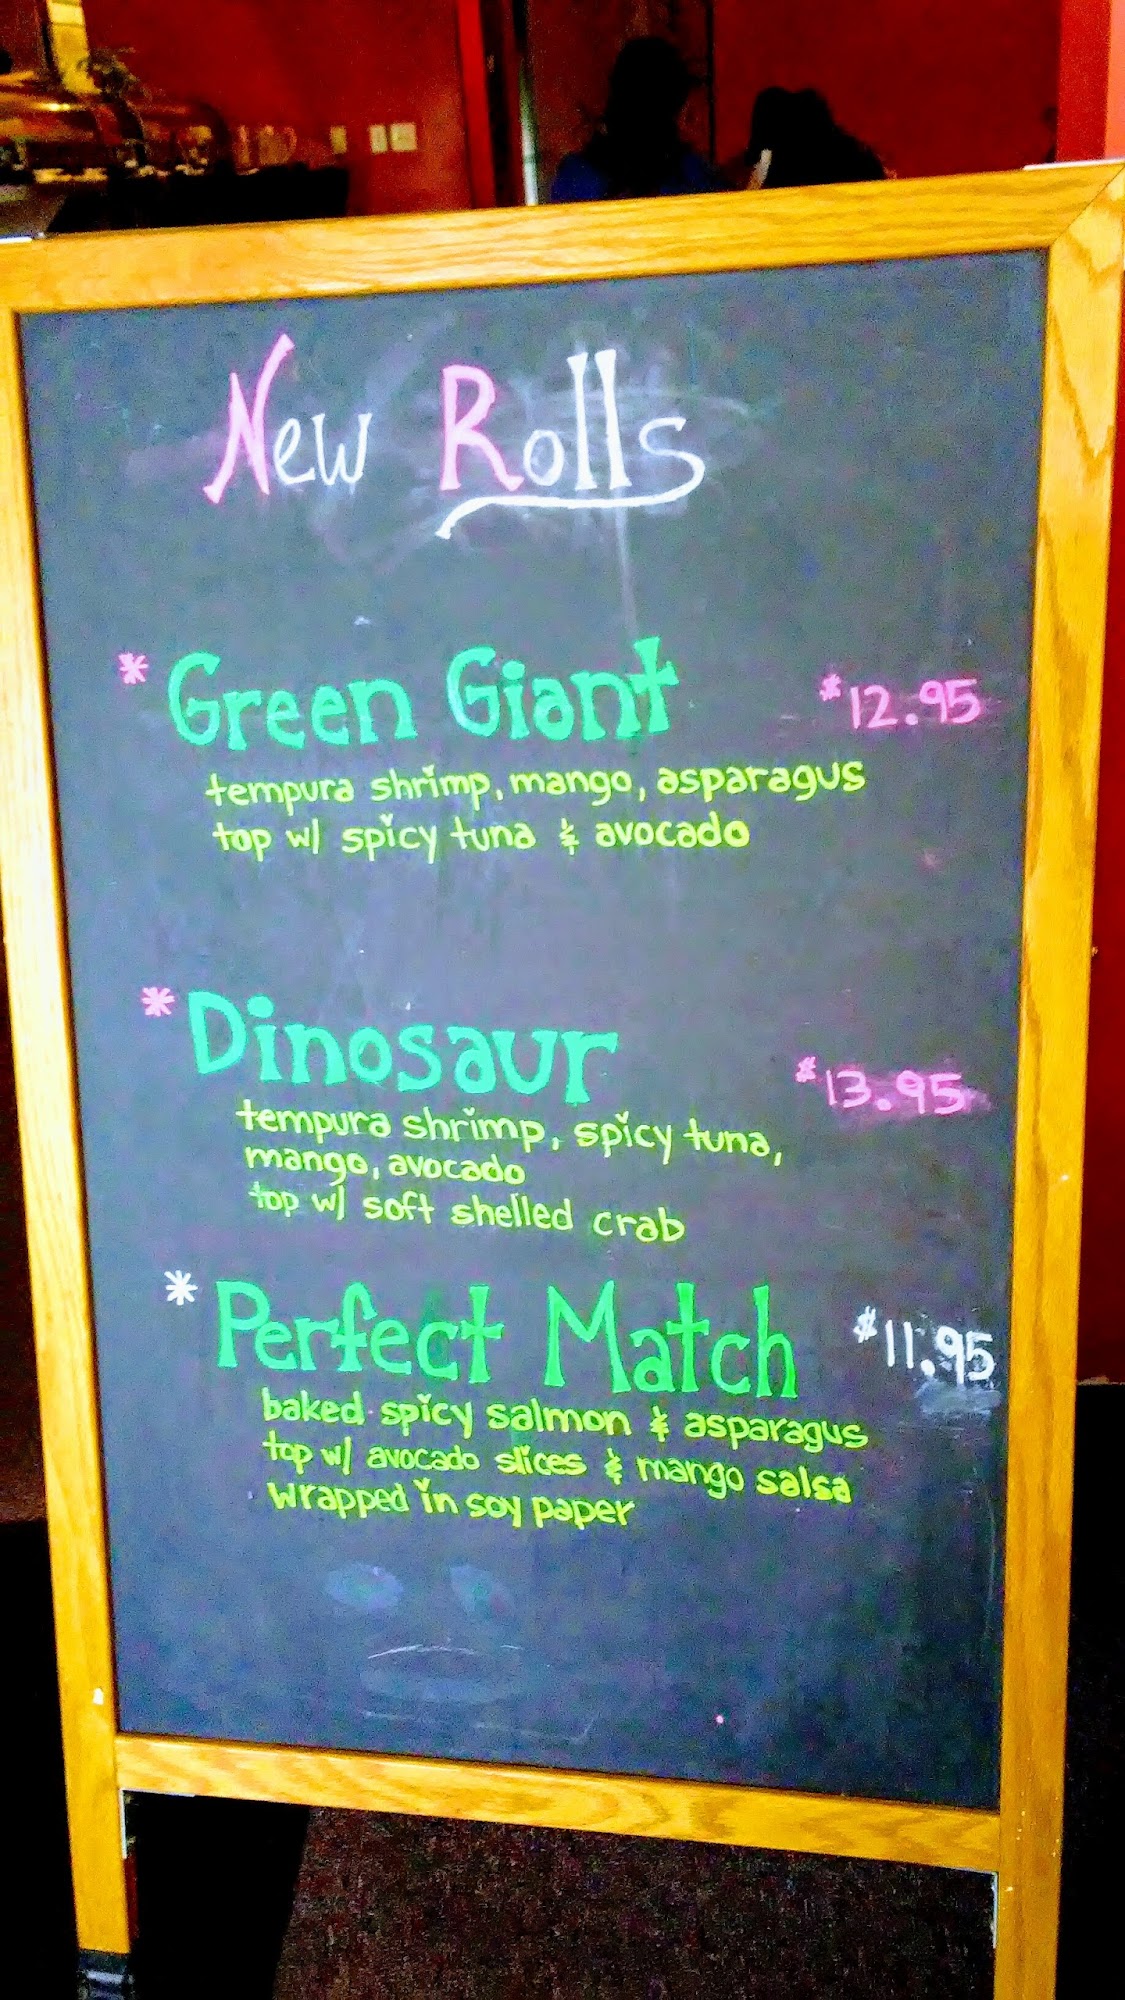 New Rolls
* Green Giant $12.95
tempura shrimp, mango, asparagus
top w/ spicy tuna & avocado
* Dinosaur $13.95
tempura shrimp, spicy tuna,
mango, avocado
top w/ soft shelled crab
* Perfect Match $11.95
baked spicy salmon & asparagus
top w/ avocado slices & mango salsa
wrapped in soy paper